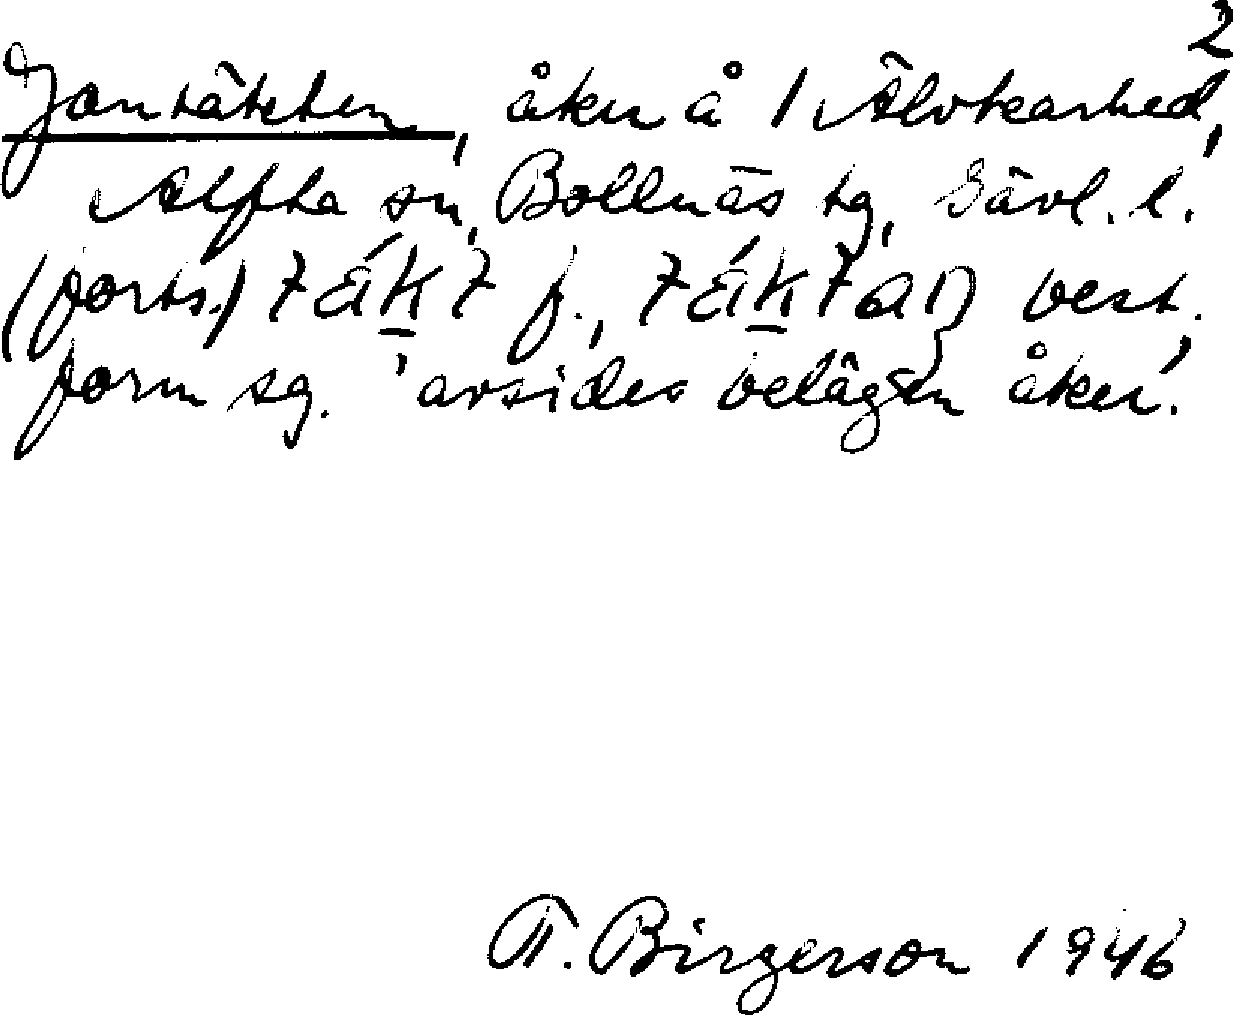 2
Jontäkten, åker å 1 Älvkarhed,
Alfta sn, Bollnäs tg, Gävl. l.
(forts.) täkt f., täktan best.
form sg. 'avsides belägen åker'.
T. Birgerson 1946